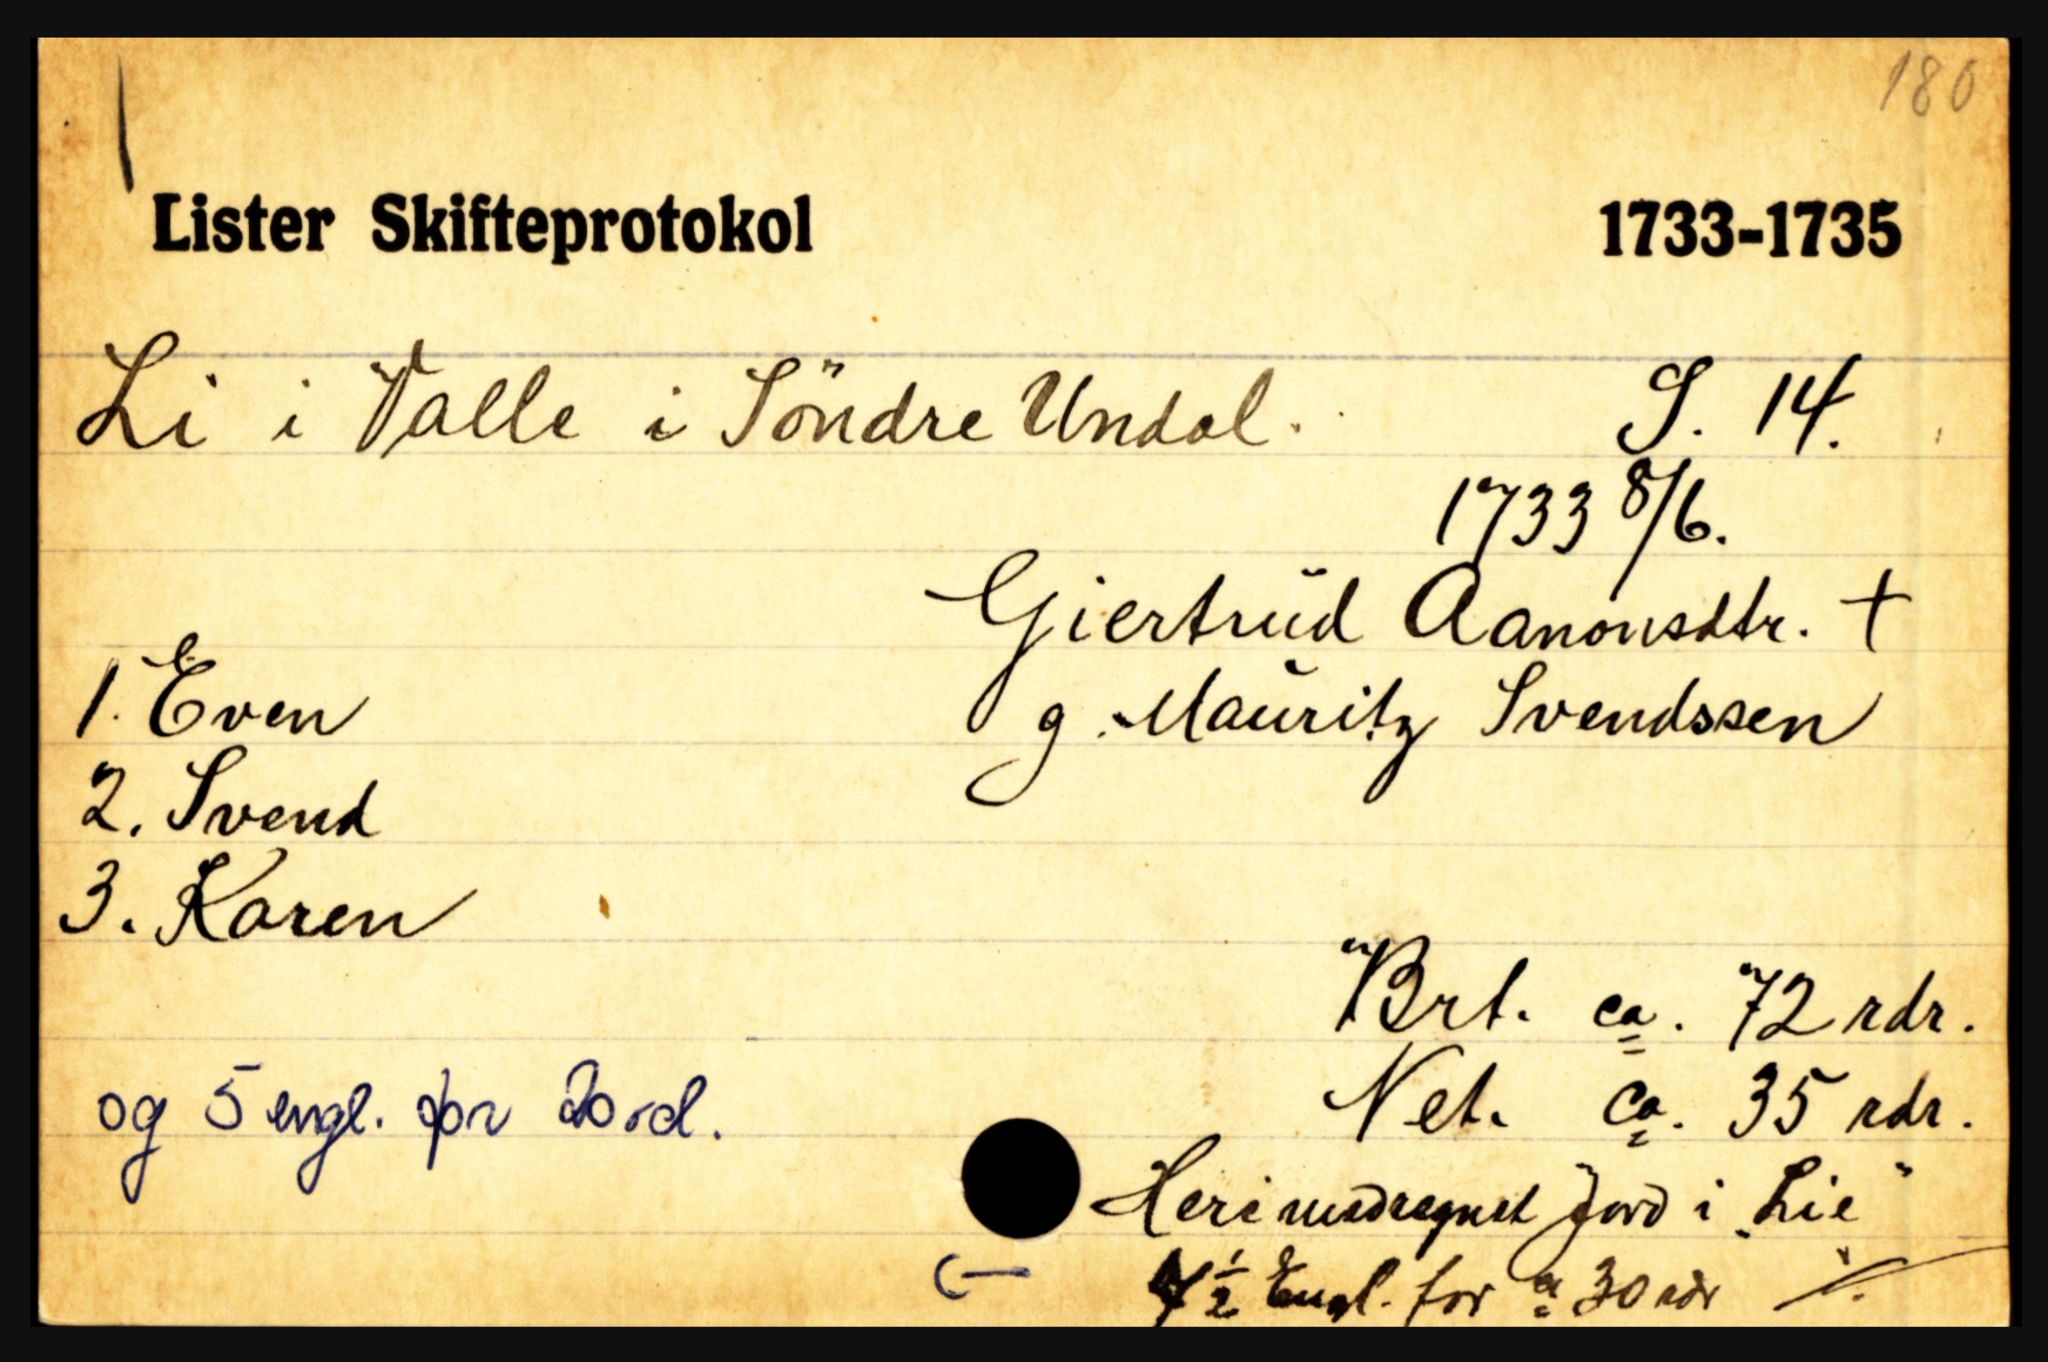 180
Lister Skifteprotokol 1733-1735
Li i Valle i Söndre Undal. S. 14.
1733 8/6.
Giertrud Aanonsdtr. +
1. Even g. Mauritz Svendssen
2. Svend
3. Karen
Brt. ca. 72 rdr.
og 5 engl. for 20 rd. Net. ca. 35 rdr.
Heri medregnet Jord i "Lie"
½ Engl. for a 30 rdr ./.